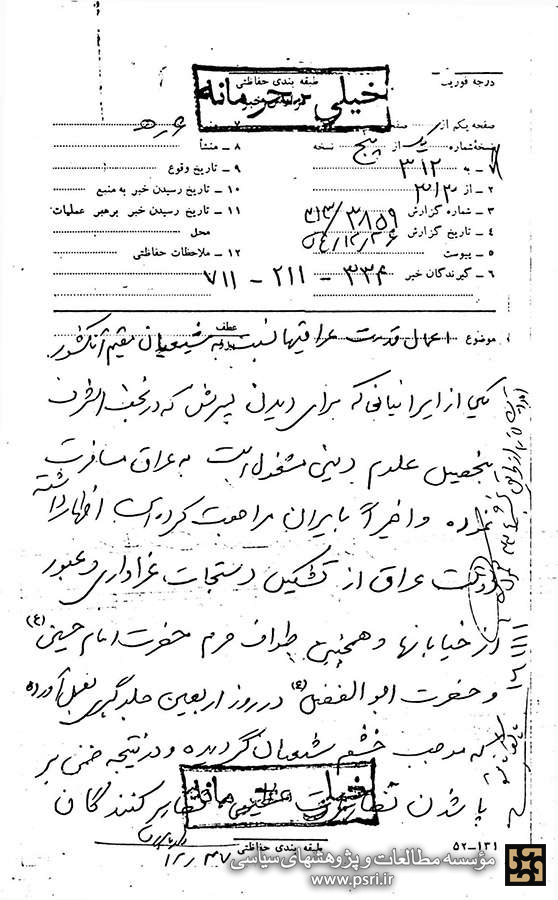 درجه فوریت
طبقه بندی حفاظتی
خیلی محرمانه
صفحه یکم از صفحه
نسخه شماره یک از پنج نسخه
۱ - به ۳۱۲
۲ - از
۳ - شماره گزارش
۴ - تاریخ گزارش
۵ - پیوست
۶ - گیرندگان خبر ۳۳۴ - ۲۱۱ - ۷۱۱
۸ - منشأ
۹ - تاریخ وقوع
۱۰ - تاریخ رسیدن خبر به منبع
۱۱ - تاریخ رسیدن خبر برهبر عملیات
محل
۱۲ - ملاحظات حفاظتی
موضوع اعمال قدرت عراقیها نسبت به شیعیان مقیم آنکشور
عطف
یکی از ایرانیانی که برای دیدن پسرش که در نجف اشرف
بتحصیل علوم دینی مشغول است به عراق مسافرت
نموده و اخیراً بایران مراجعت کرده است اظهار داشته
دولت عراق از تشکیل دستجات عزاداری و عبور
از خیابانها و همچنین طواف حرم حضرت امام حسین (ع)
و حضرت ابوالفضل (ع) در روز اربعین جلوگیری بعمل آورده
که موجب خشم شیعیان گردیده و در نتیجه ضمن بر
پا شدن تظاهرات تظاهر کنندگان
خیلی محرمانه
طبقه بندی حفاظتی
۵۲-۱۳۱
مؤسسه مطالعات و پژوهشهای سیاسی
www.psri.ir